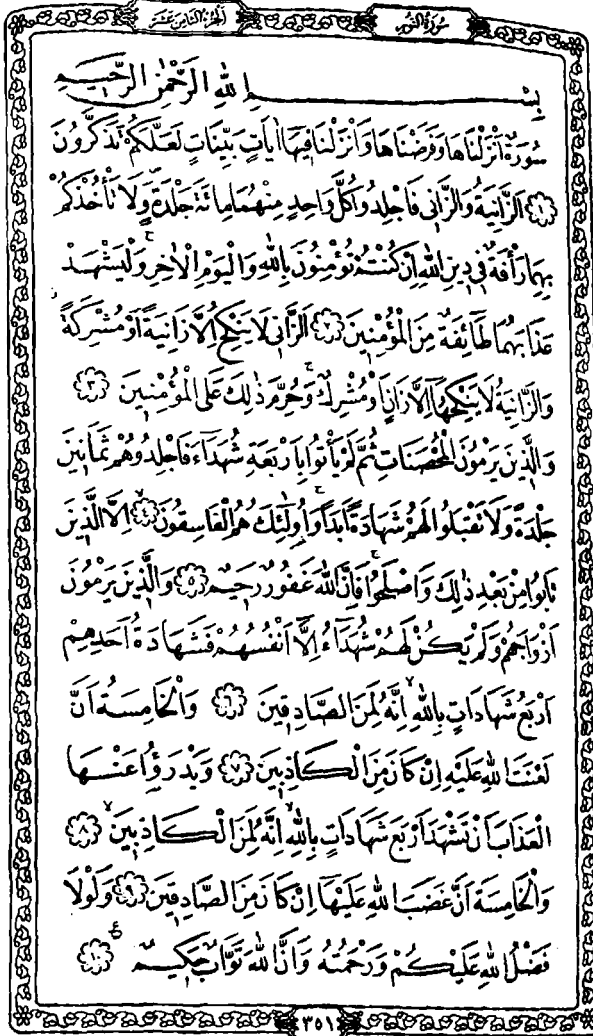 سُورَةُ النُّورِ
اَلْجُزْءُ الثَّامِنُ عَشَرَ
بِسْمِ اللهِ الرَّحْمٰنِ الرَّحٖيمِ
سُورَةٌ اَنْزَلْنَاهَا وَفَرَضْنَاهَا وَاَنْزَلْنَا فٖيهَٓا اٰيَاتٍ بَيِّنَاتٍ لَعَلَّكُمْ تَذَكَّرُونَ
﴿١﴾ اَلزَّانِيَةُ وَالزَّانٖى فَاجْلِدُوا كُلَّ وَاحِدٍ مِنْهُمَا مِائَةَ جَلْدَةٍ وَلَا تَأْخُذْكُمْ
بِهِمَا رَأْفَةٌ فٖى دٖينِ اللهِ اِنْ كُنْتُمْ تُؤْمِنُونَ بِاللهِ وَالْيَوْمِ الْاٰخِرِ وَلْيَشْهَدْ
عَذَابَهُمَا طَٓائِفَةٌ مِنَ الْمُؤْمِنٖينَ ﴿٢﴾ اَلزَّانٖى لَا يَنْكِحُ اِلَّا زَانِيَةً اَوْ مُشْرِكَةً
وَالزَّانِيَةُ لَا يَنْكِحُهَٓا اِلَّا زَانٍ اَوْ مُشْرِكٌ وَحُرِّمَ ذٰلِكَ عَلَى الْمُؤْمِنٖينَ ﴿٣﴾
وَالَّذٖينَ يَرْمُونَ الْمُحْصَنَاتِ ثُمَّ لَمْ يَأْتُوا بِاَرْبَعَةِ شُهَدَٓاءَ فَاجْلِدُوهُمْ ثَمَانٖينَ
جَلْدَةً وَلَا تَقْبَلُوا لَهُمْ شَهَادَةً اَبَدًا وَاُولٰٓئِكَ هُمُ الْفَاسِقُونَ ﴿٤﴾ اِلَّا الَّذٖينَ
تَابُوا مِنْ بَعْدِ ذٰلِكَ وَاَصْلَحُوا فَاِنَّ اللهَ غَفُورٌ رَحٖيمٌ ﴿٥﴾ وَالَّذٖينَ يَرْمُونَ
اَزْوَاجَهُمْ وَلَمْ يَكُنْ لَهُمْ شُهَدَٓاءُ اِلَّٓا اَنْفُسُهُمْ فَشَهَادَةُ اَحَدِهِمْ
اَرْبَعُ شَهَادَاتٍ بِاللهِ اِنَّهُ لَمِنَ الصَّادِقٖينَ ﴿٦﴾ وَالْخَامِسَةُ اَنَّ
لَعْنَتَ اللهِ عَلَيْهِ اِنْ كَانَ مِنَ الْكَاذِبٖينَ ﴿٧﴾ وَيَدْرَؤُا عَنْهَا
الْعَذَابَ اَنْ تَشْهَدَ اَرْبَعَ شَهَادَاتٍ بِاللهِ اِنَّهُ لَمِنَ الْكَاذِبٖينَ ﴿٨﴾
وَالْخَامِسَةَ اَنَّ غَضَبَ اللهِ عَلَيْهَٓا اِنْ كَانَ مِنَ الصَّادِقٖينَ ﴿٩﴾ وَلَوْلَا
فَضْلُ اللهِ عَلَيْكُمْ وَرَحْمَتُهُ وَاَنَّ اللهَ تَوَّابٌ حَكٖيمٌ ﴿١٠﴾
٣٥١